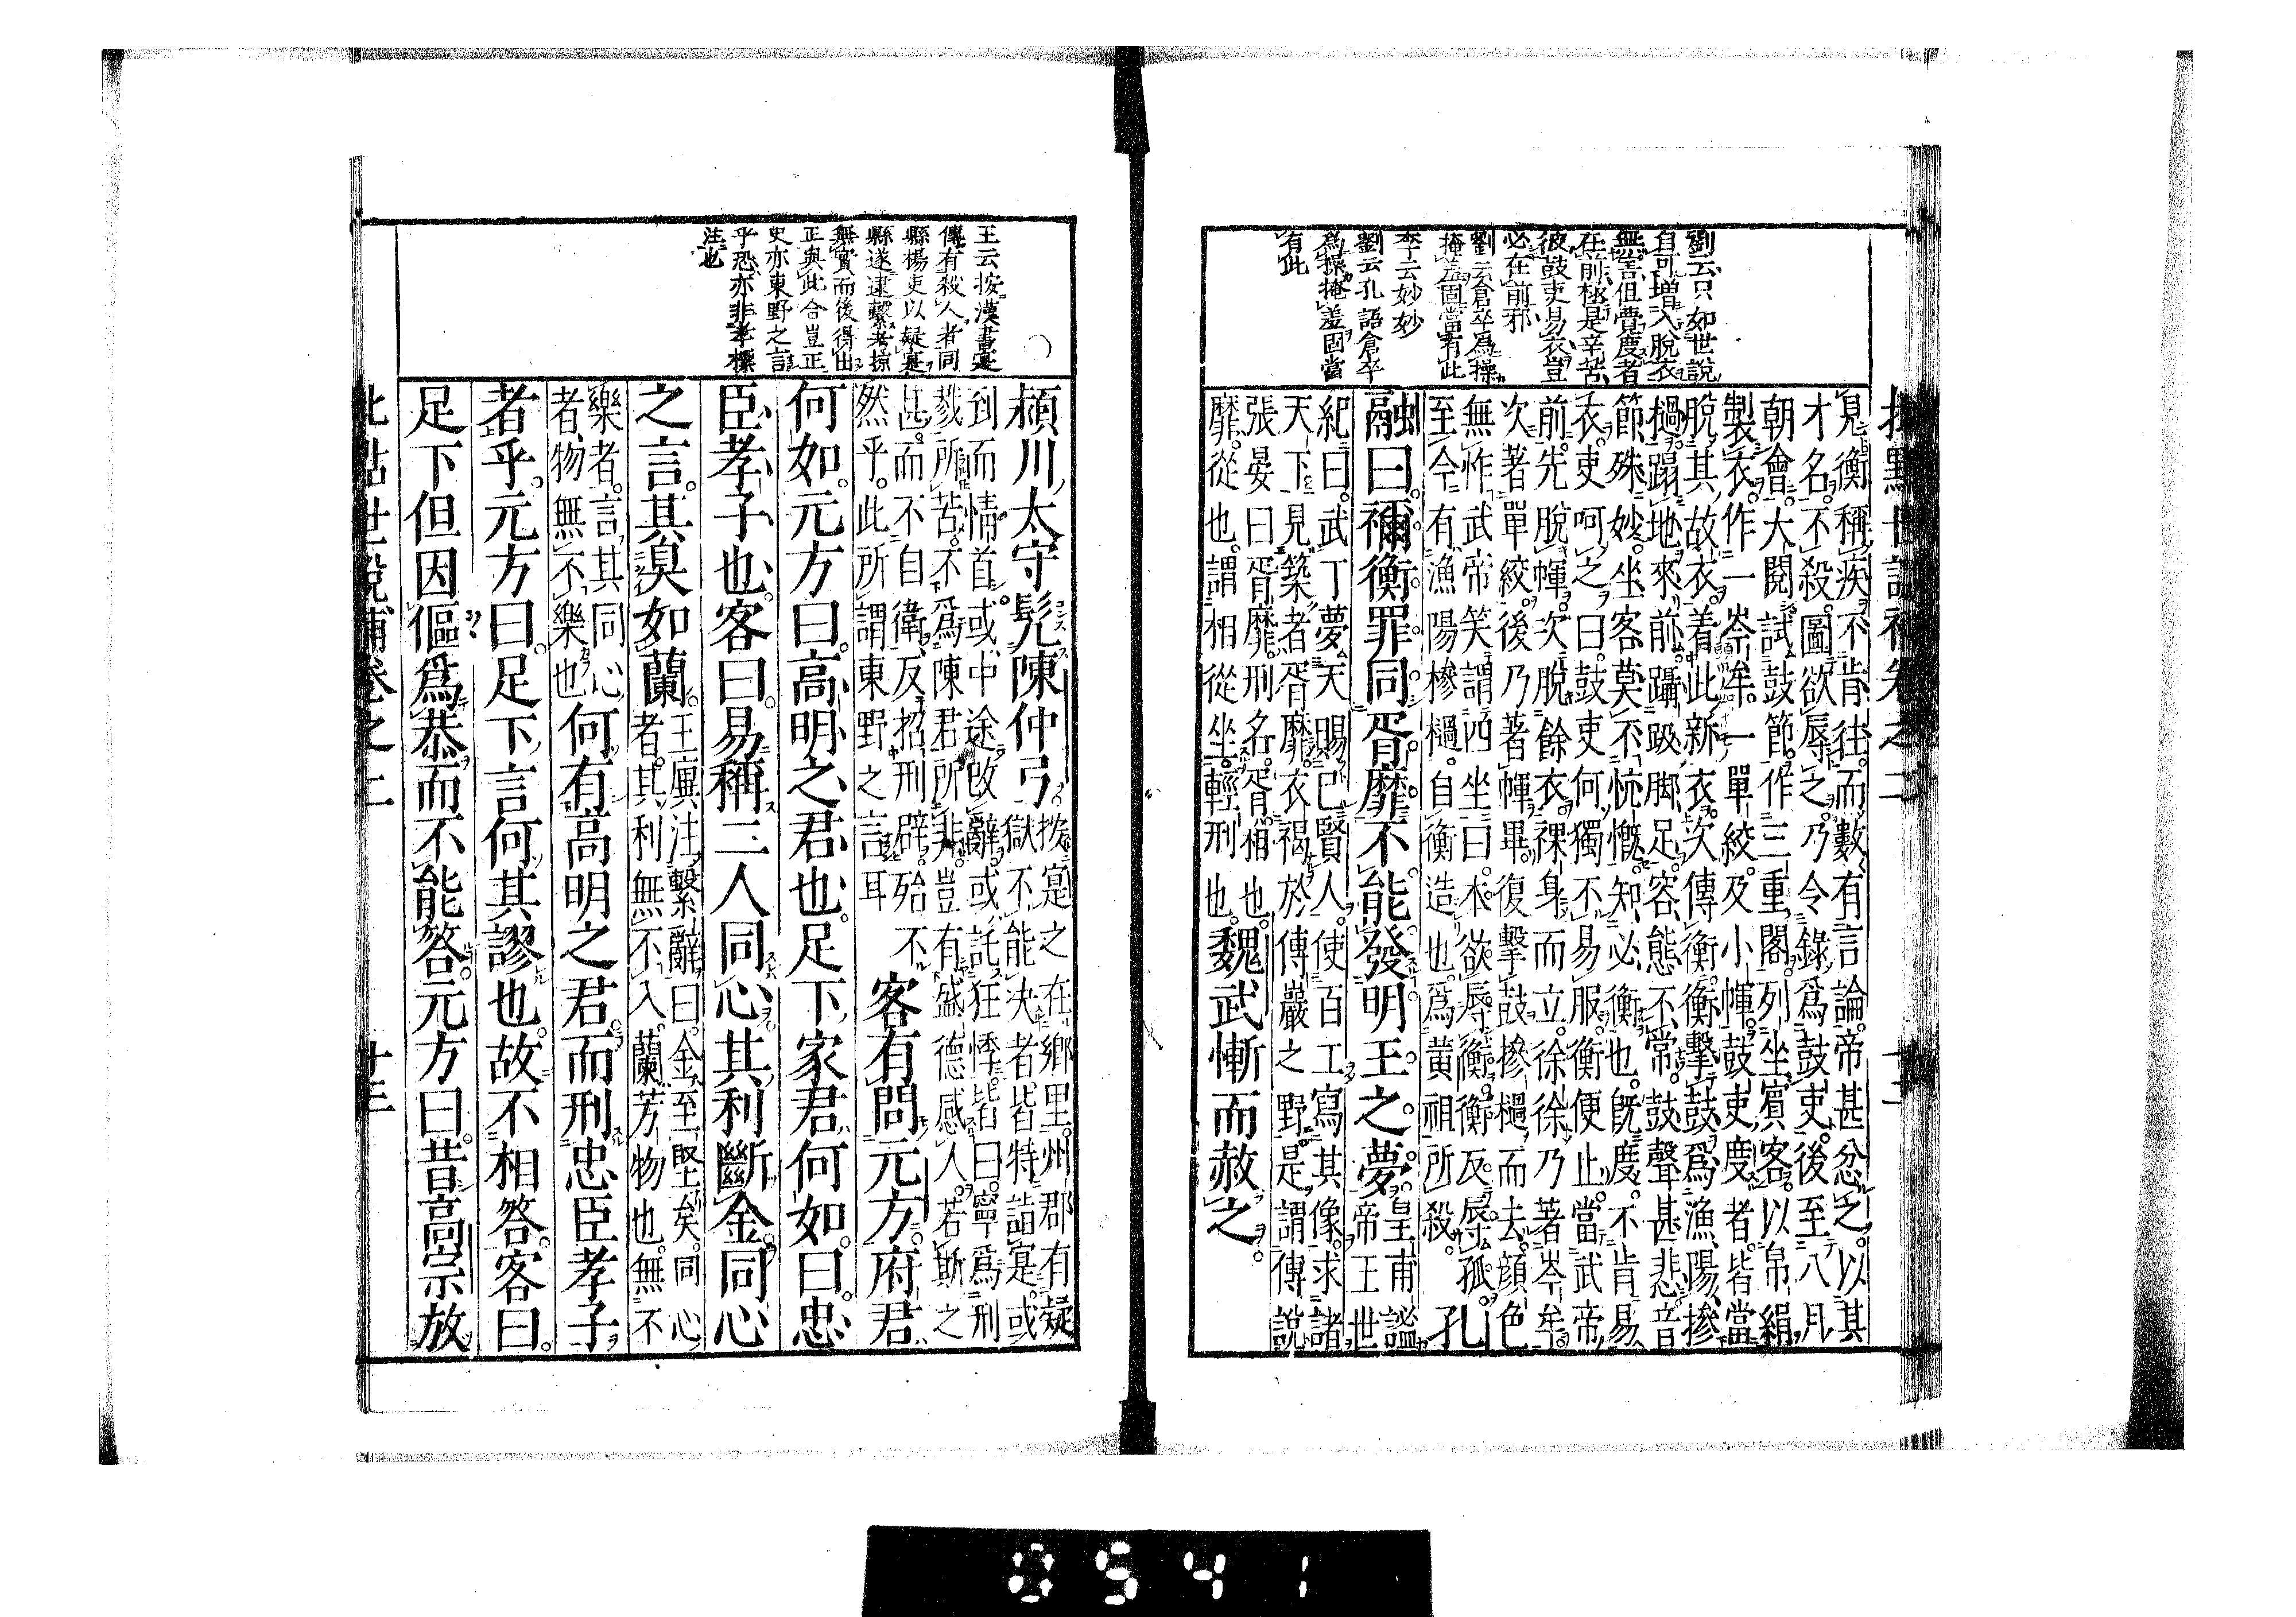 批點世說補卷之二 十二
劉云只如世說
自可增入脫衣
無害但覺度者
在前極是辛苦
彼鼓吏易衣豈
必在前邪
劉云倉卒爲操
掩羞固當有此
李云妙妙
劉云孔語倉卒
爲操掩羞固當
有此
見衡稱疾不肯往而數有言論帝甚忿之以其
才名不殺圖欲辱之乃令錄爲鼓吏後至八月
朝會大閱試鼓節作三重閣列坐賓客以帛絹
製衣作一岑牟一單絞及小幝鼓吏度者皆當
脫其故衣着此新衣次傳衡衡擊鼓爲漁陽摻
檛蹋地來前躡馺脚足容態不常鼓聲甚悲音
節殊妙坐客莫不忼慨知必衡也旣度不肯易
衣吏呵之曰鼓吏何獨不易服衡便止當武帝
前先脫幝次脫餘衣裸身而立徐徐乃著岑牟
次著單絞後乃著幝畢復擊鼓摻檛而去顏色
無怍武帝笑謂四坐曰本欲辱衡衡反辱孤
至今有漁陽摻檛自衡造也爲黃祖所殺 孔
融曰禰衡罪同胥靡不能發明王之夢 皇甫謐帝王世
紀曰武丁夢天賜已賢人使百工寫其像求諸
天下見築者胥靡衣褐於傅巖之野是謂傅說
張晏曰胥靡刑名胥相也
靡從也謂相從坐輕刑也 魏武慚而赦之
王云按漢書寔
傳有殺人者同
縣楊吏以疑寔
縣遂逮繫考掠
無實而後得出
正與此合豈正
史亦東野之言
乎恐亦非孝標
注也
潁川太守髡陳仲弓 按寔之在鄉里州郡有疑
獄不能決者皆特詣寔或
到而情首或中途改辭或託狂悸皆曰寧爲刑
戮所苦不爲陳君所非豈有盛德感人若斯之
甚而不自衛反招刑辟殆不
然乎此所謂東野之言耳 客有問元方府君
何如元方曰高明之君也足下家君何如曰忠
臣孝子也客曰易稱二人同心其利斷金同心
之言其臭如蘭 王廙注繫辭曰金至堅矣同心
者其利無不入蘭芳物也無不
樂者言其同心
者物無不樂也 何有高明之君而刑忠臣孝子
者乎元方曰足下言何其謬也故不相答客曰
足下但因傴爲恭而不能答元方曰昔高宗放
批點世說補卷之二 十三
0541